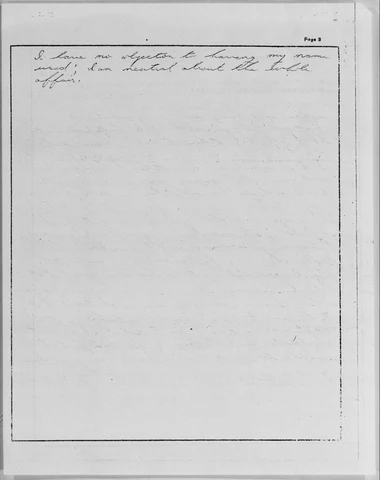 Page 3
I have no objection to having my name
used; I am neutral about the
affair.